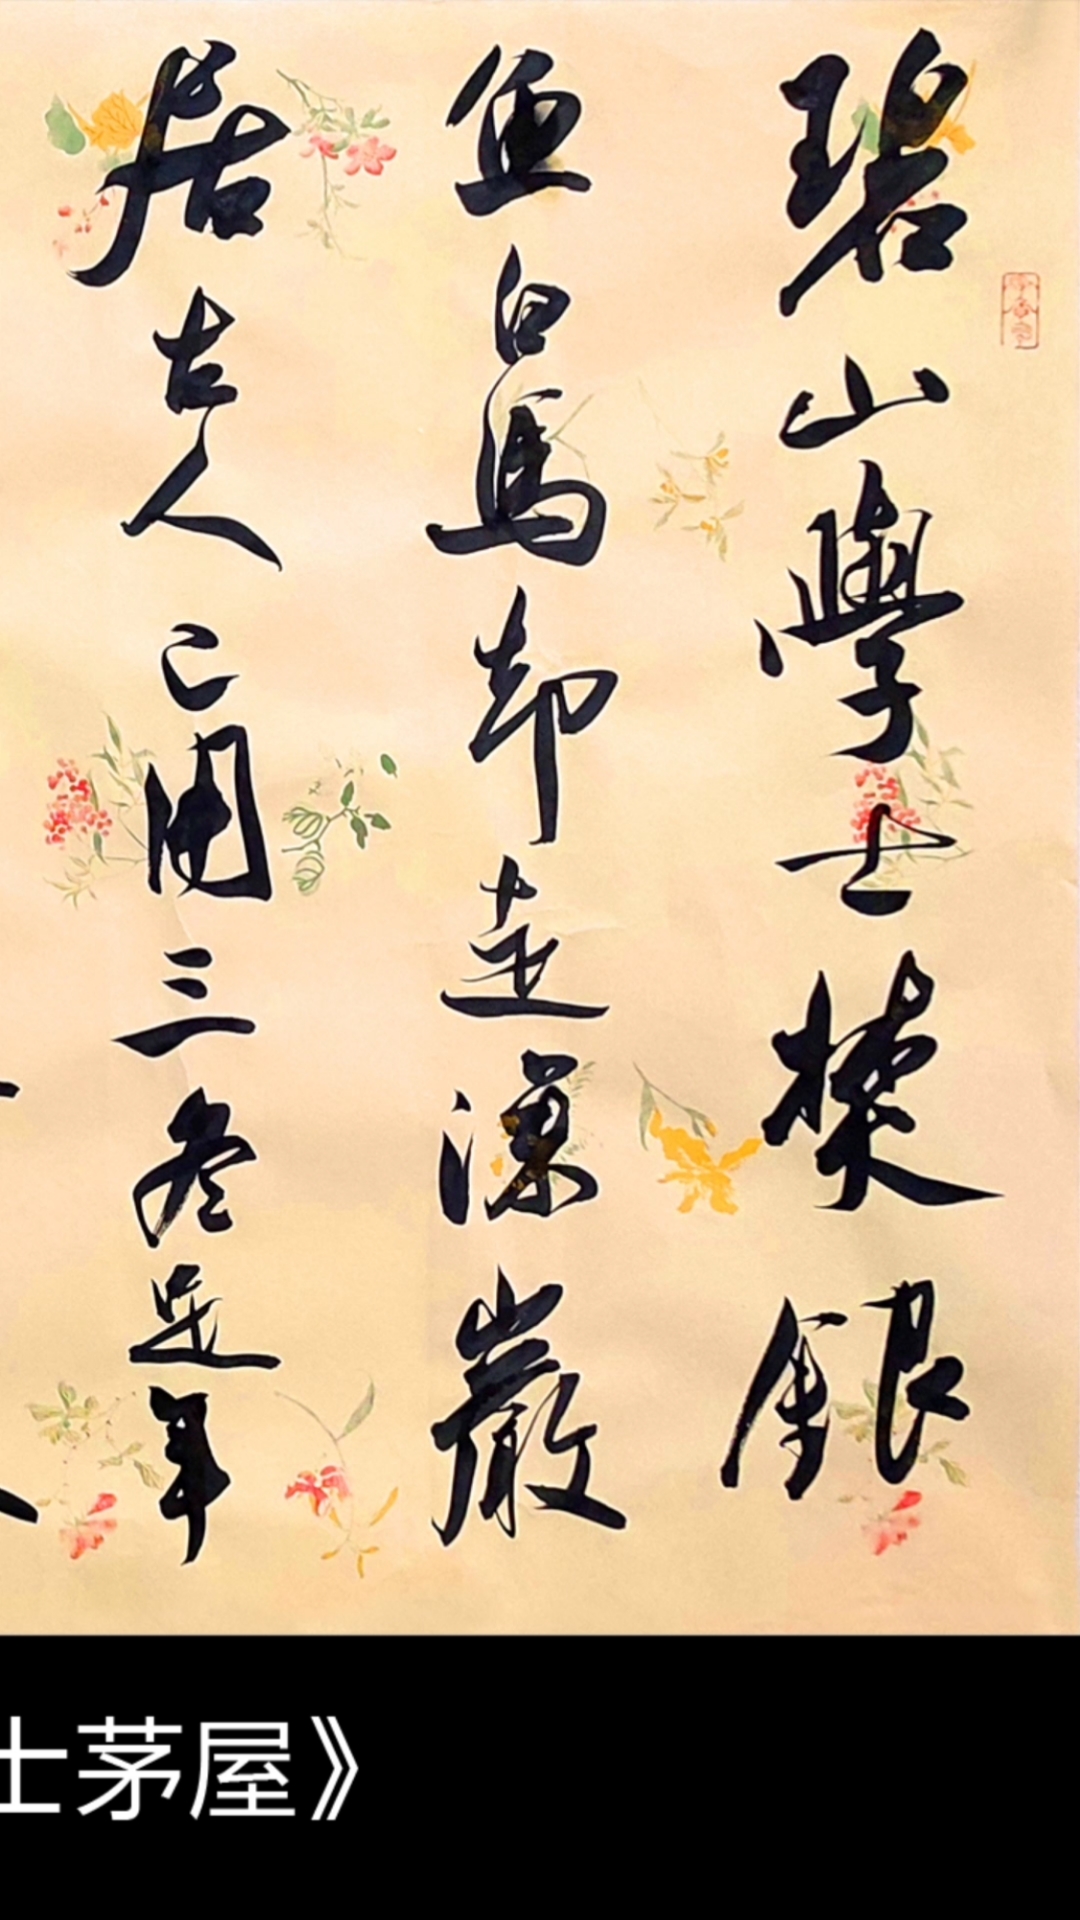 碧山學士焚銀
鱼白馬却走深巖
居古人已用三冬足年
士茅屋》